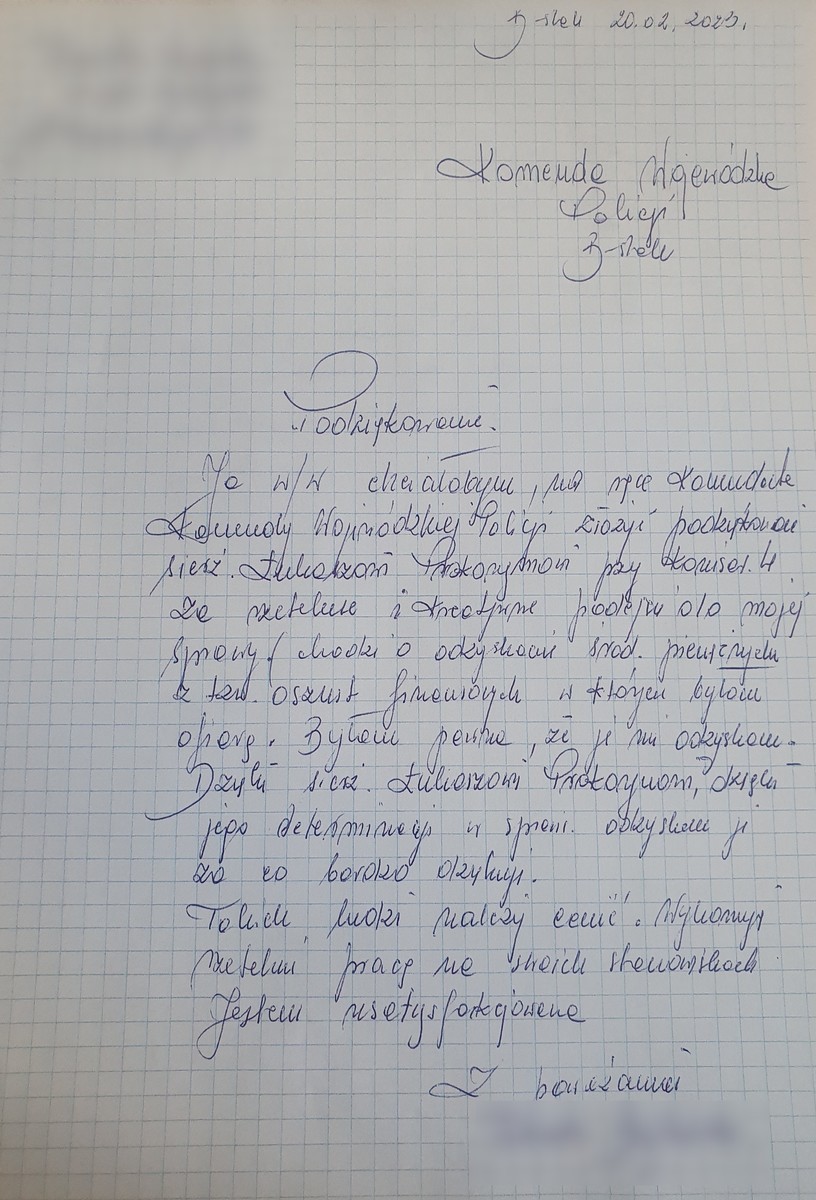 B-stok 20.02.2023.
Komenda Wojewódzka
Policji
B-stok
Podziękowanie.
Ja w/w chciałabym, na ręce Komendanta
Komendy Wojewódzkiej Policji złożyć podziękowanie
sierż. Łukaszowi Prokopymowi przy Komisar. 4
za rzetelne i kreatywne podejście do mojej
sprawy (chodzi o odzyskanie środ. pieniężnych
z tzw. oszust finansowych w których byłam
ofiarą. Byłam pewna, że ja nie odzyskam.
Dzięki sierż. Łukaszowi, dzięki
jego determinacji w spraw. odzyskałam je
za co bardzo dziękuję.
Takich ludzi należy cenić. Wykonują
rzetelnie pracę na swoich stanowiskach
Jestem usatysfakcjonowana
Z poważaniem